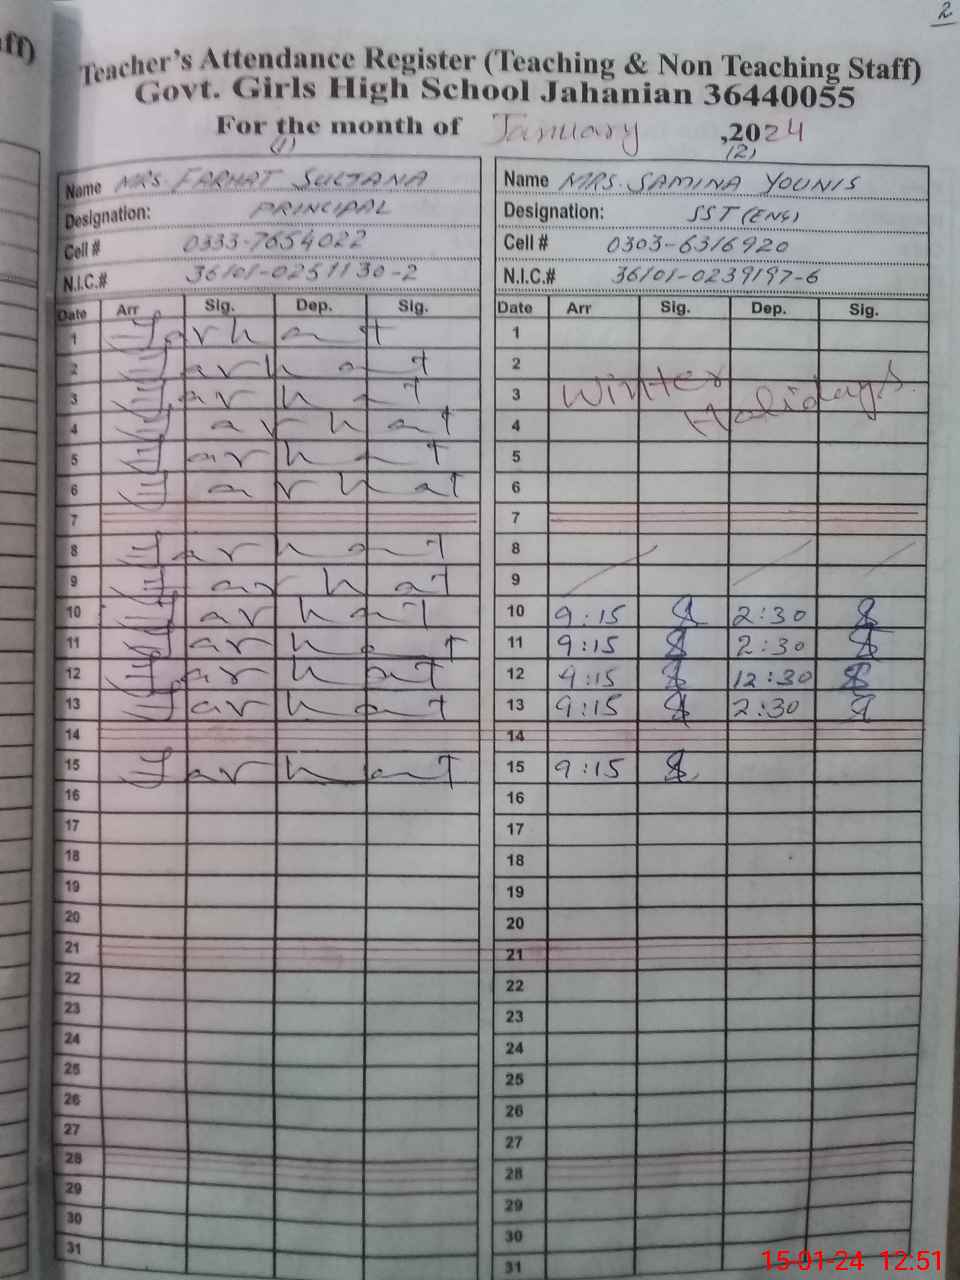 2
aff)
Teacher's Attendance Register (Teaching & Non Teaching Staff)
Govt. Girls High School Jahanian 36440055
For the month of January ,2024
(1) (2)
Name MRS. FARHAT SULTANA
Designation: PRINCIPAL
Cell # 0333-7654022
N.I.C.# 36101-0251130-2
Date Arr Sig. Dep. Sig.
1 Farhat
2 Farhat
3 Farhat
4 Farhat
5 Farhat
6 Farhat
7
8 Farhat
9 Farhat
10 Farhat
11 Farhat
12 Farhat
13 Farhat
14
15 Farhat
16
17
18
19
20
21
22
23
24
25
26
27
28
29
30
31
Name MRS. SAMINA YOUNIS
Designation: SST (ENG)
Cell # 0303-6316920
N.I.C.# 36101-0239197-6
Date Arr Sig. Dep. Sig.
1
2
3 Winter Holidays.
4
5
6
7
8
9
10 9:15 2:30
11 9:15 2:30
12 9:15 12:30
13 9:15 2:30
14
15 9:15
16
17
18
19
20
21
22
23
24
25
26
27
28
29
30
31
15-01-24 12:51